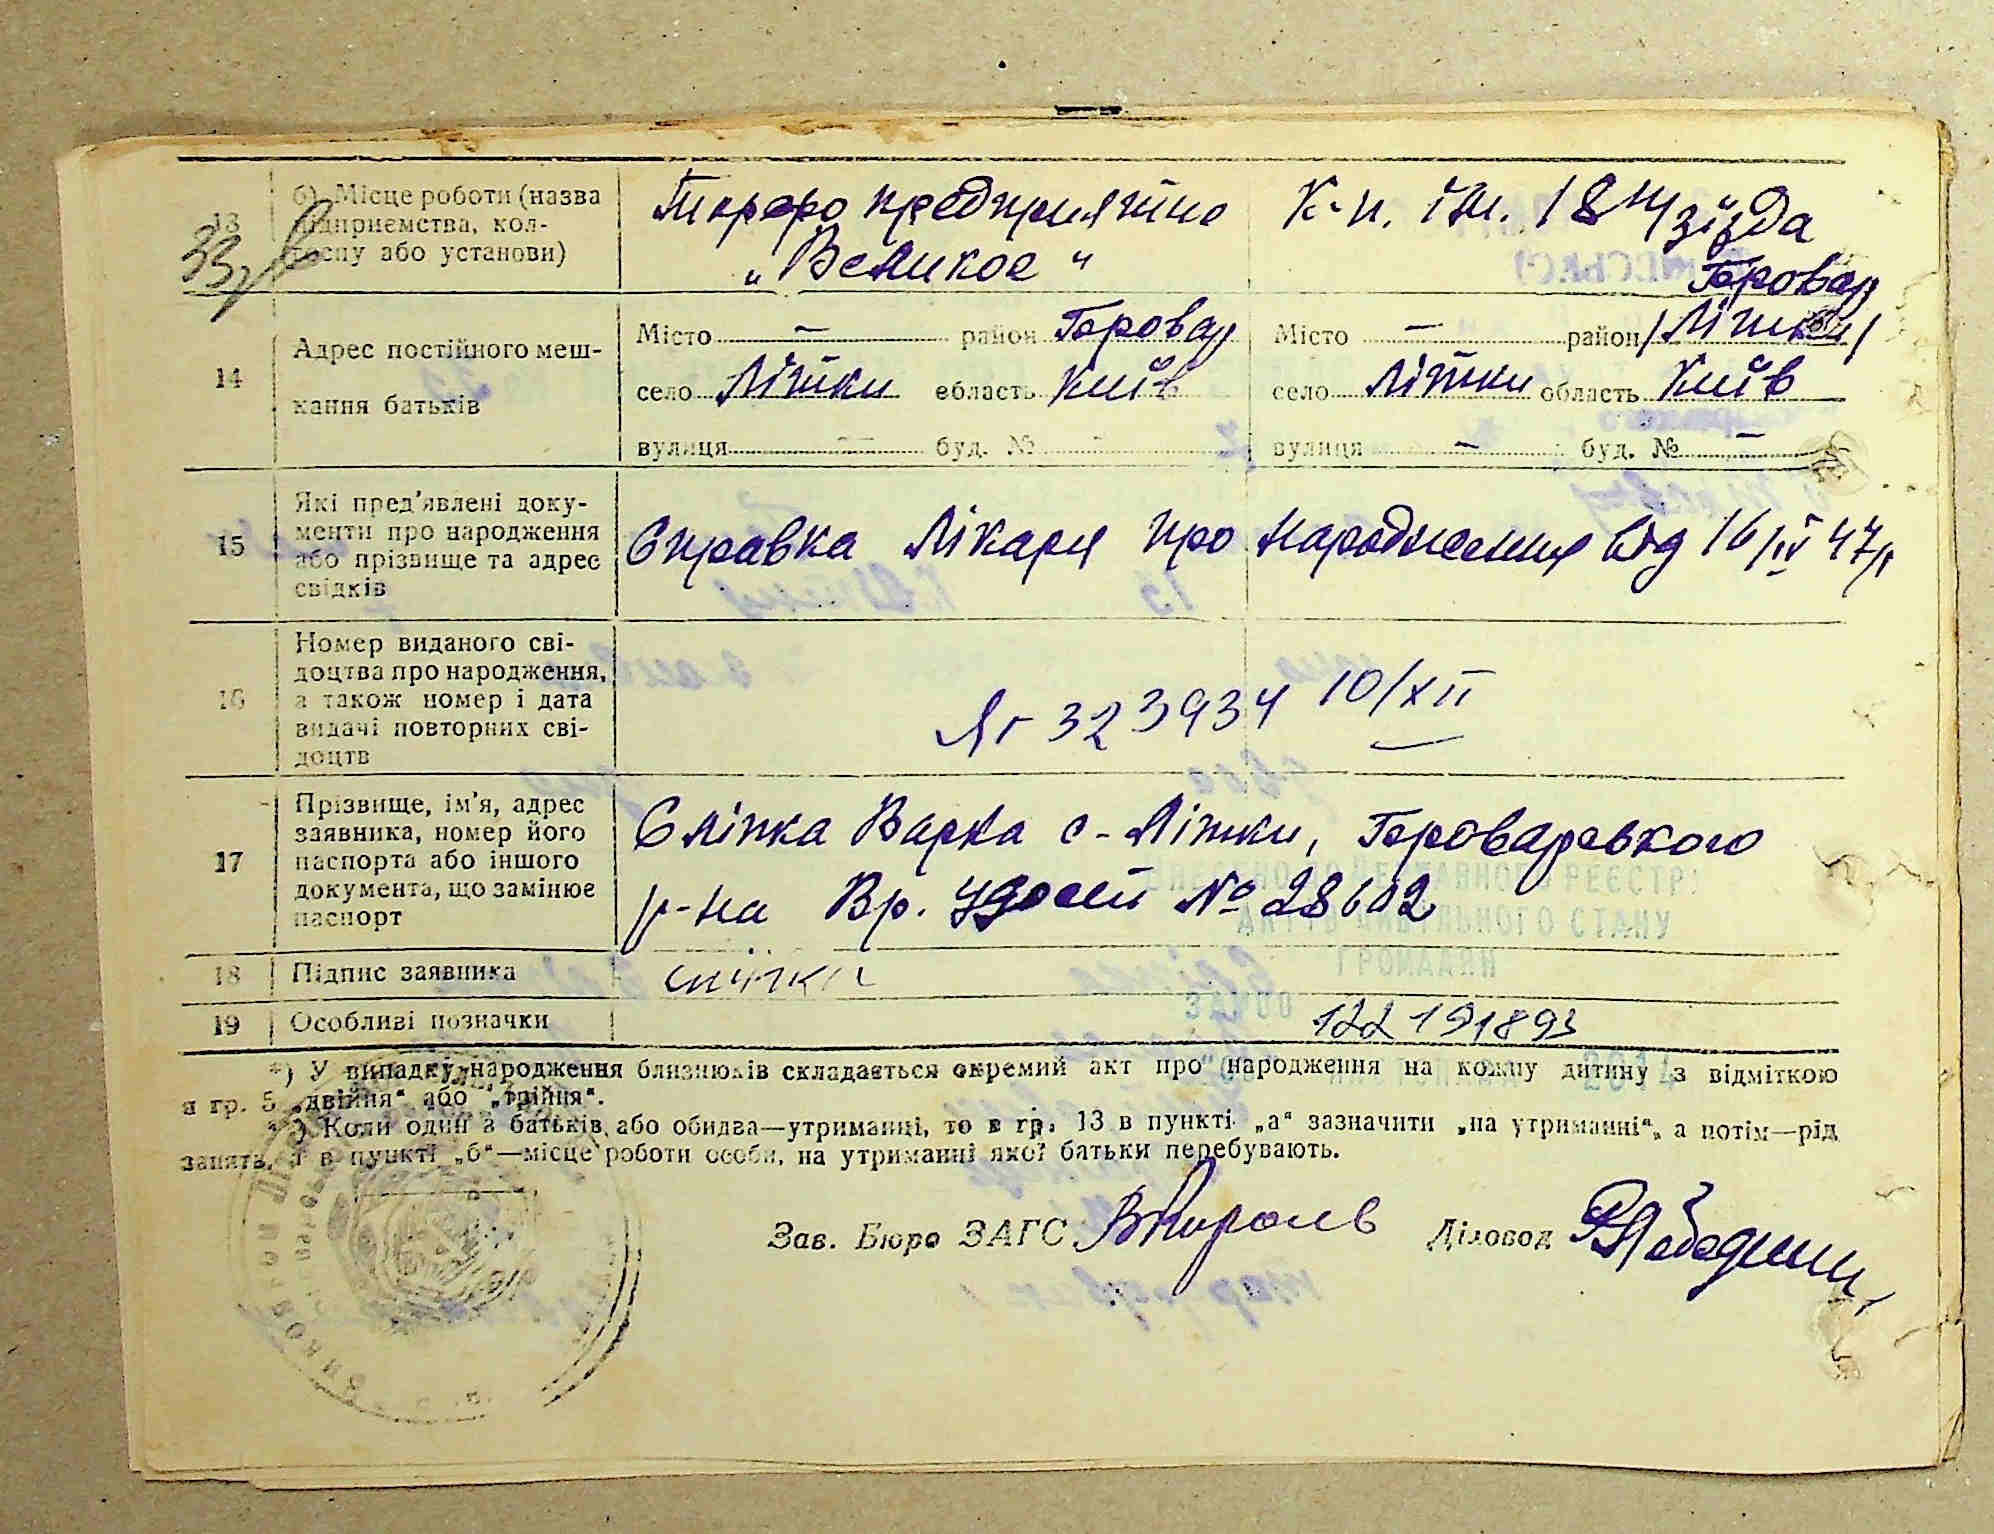 13
б) Місце роботи (назва підприємства, колгоспу або установи)
Торфопредприятие К-п. ім. 18 п/зїзда
„Великое“
33
14
Адрес постійного мешкання батьків
Місто — район Бровар Місто — район /Літки/
Бровар
село Літки область Київ село Літки область Київ
вулиця — буд. № - вулиця — буд. № —
15
Які пред'явлені документи про народження або прізвище та адрес свідків
Справка лікаря про народження від 16/IV 47р
16
Номер виданого свідоцтва про народження, а також номер і дата видачі повторних свідоцтв
Яг 323934 10/XII
17
Прізвище, ім'я, адрес заявника, номер його паспорта або іншого документа, що замінює паспорт
Сліпка Варка с-Літки, Броварського
р-на Вр. удост № 28602
ДЕРЖАВНОГО РЕЄСТР
АКТІВ ЦИВІЛЬНОГО СТАНУ
ГРОМАДЯН
18 Підпис заявника
сліпка
19 Особливі позначки
122191893
*) У випадку народження близнюків складається окремий акт про народження на кожну дитину з відміткою
в гр. 5 „двійня“ або „трійня“.
**) Коли один з батьків або обидва—утриманці, то в гр. 13 в пункті „а“ зазначити „на утриманні“, а потім—рід
занять, а в пункті „б“—місце роботи особи, на утриманні якої батьки перебувають.
Зав. Бюро ЗАГС ВКороль Діловод Лебедин